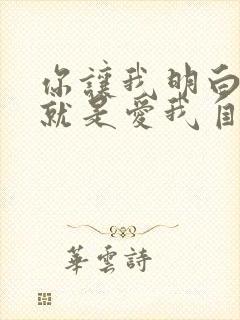 你讓我明白
就是愛我自
華雲詩